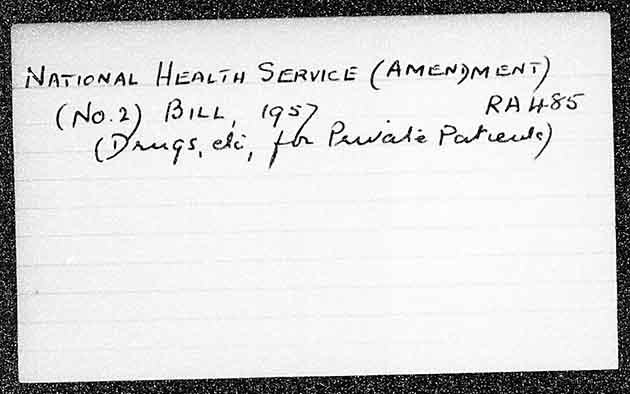 NATIONAL HEALTH SERVICE (AMENDMENT)
(No.2) BILL, 1957 RA485
(Drugs, etc, for Private Patients)